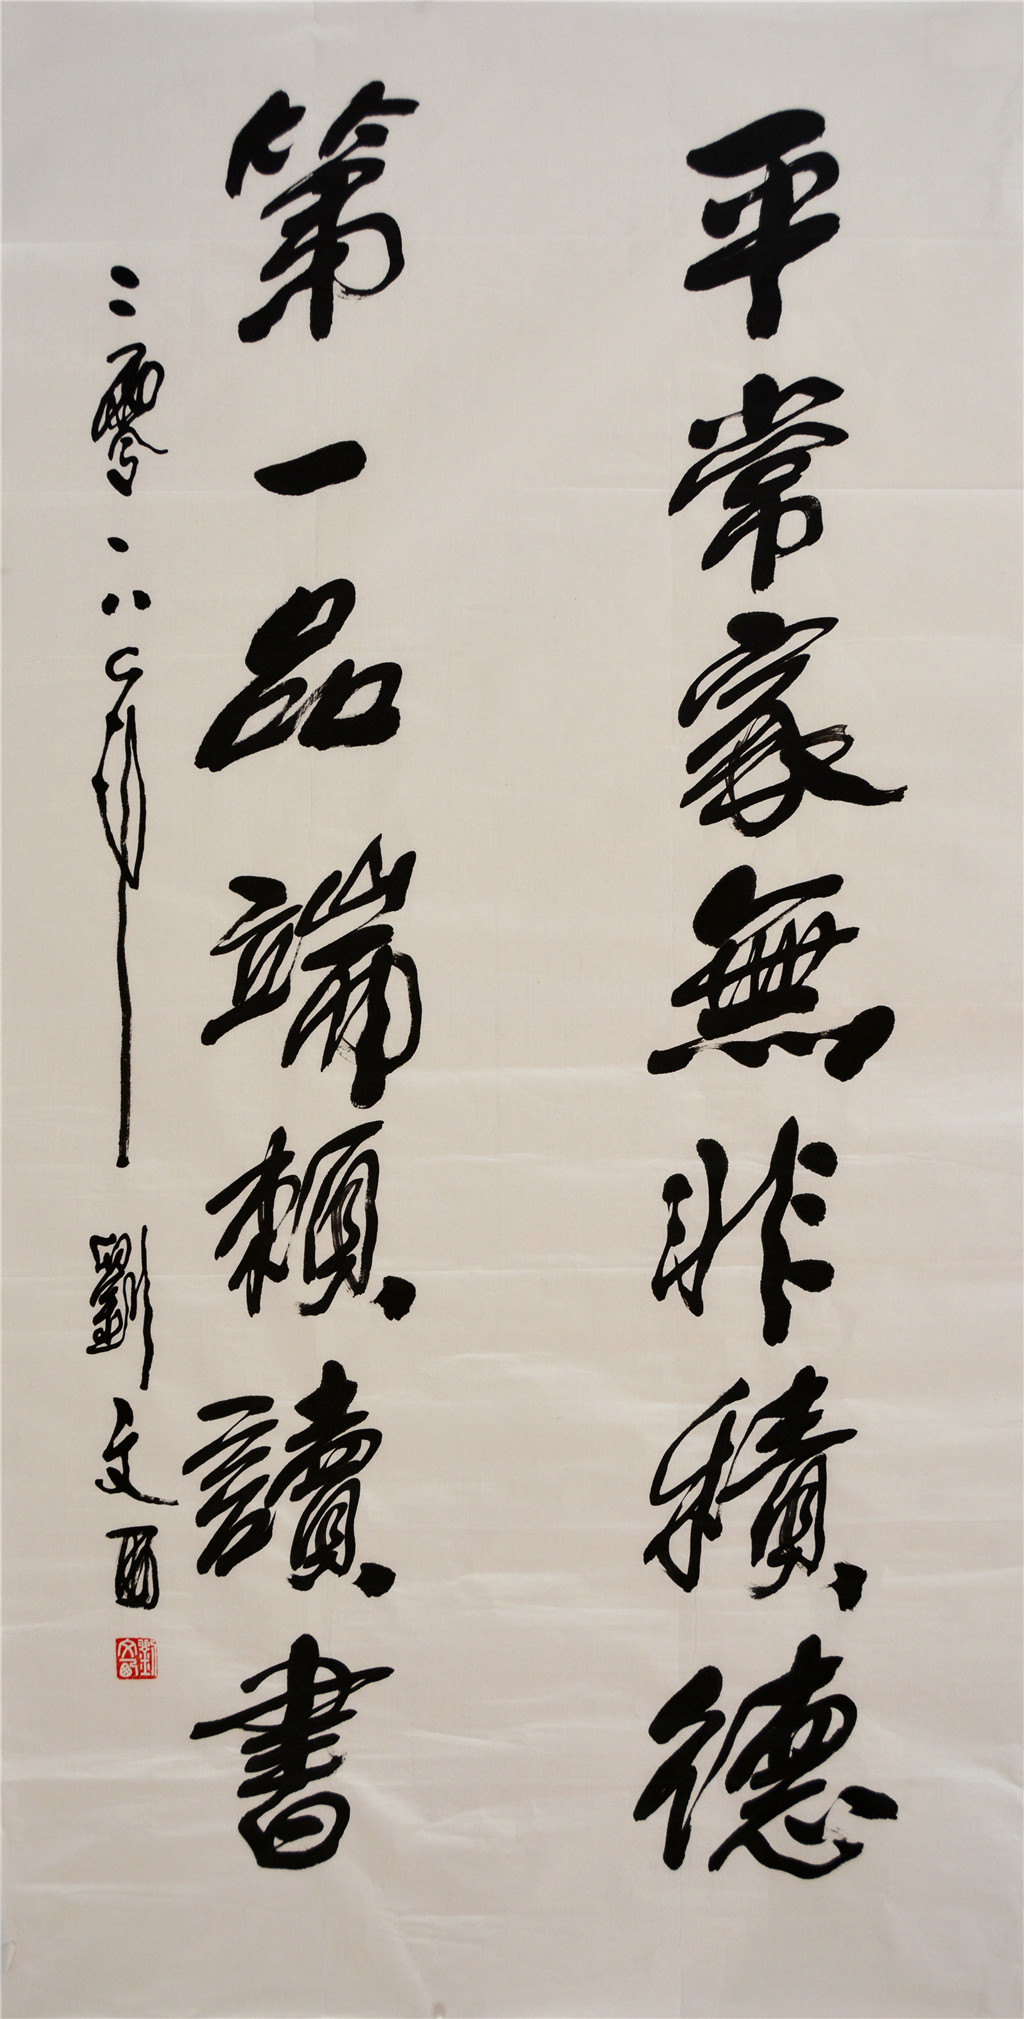 平常家無非積德
第一品端賴讀書
二零一八年 劉文西
劉文西